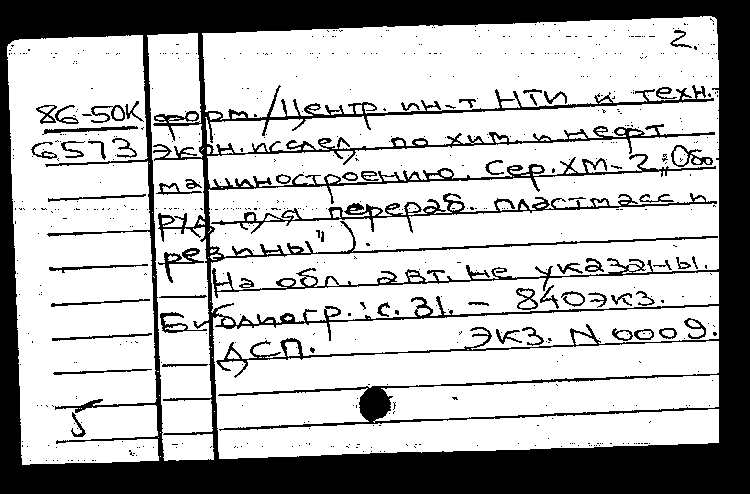 2.
86-50К форм./Центр. ин-т НТИ и техн.-
6573 экон. исслед. по хим. и нефт.
машиностроению. Сер. ХМ-2 „Обо-
руд. для перераб. пластмасс и
резины").
На обл. авт. не указаны.
Библиогр.: с. 31. – 840экз.
ДСП. Экз. N 0009.
5